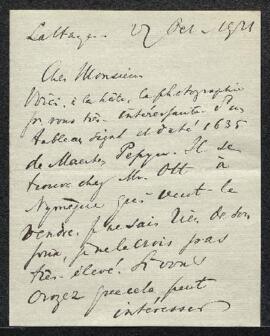 La Haye. 27 Oct. 1921
Cher Monsieur
Voici, à la hâte, la photographie
très intéressante d'un
tableau signé et daté 1635
de Maerten Pepyn. Il se
trouve chez Mr. Ott à
Nymègue qui veut le
vendre. je ne sais rien de son
prix, je ne le crois pas
très élevé. Si vous
croyez que cela peut
intéresser